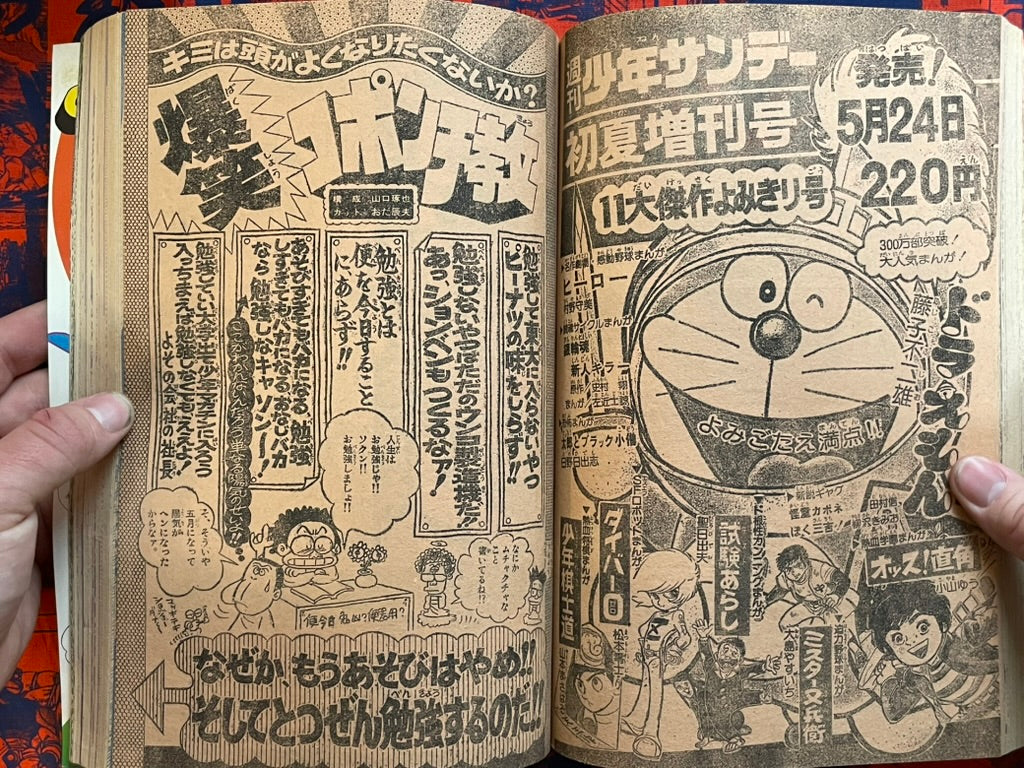 週刊少年サンデー
初夏増刊号
発売!
5月24日
220円
11大傑作よみきり号
300万部突破!
大人気まんが!
ドラえもん
藤子不二雄
よみごたえ満点!!
感動野球まんが
ヒーロー
新人キラー
太郎とブラック小僧
日野日出志
▼SFロボットまんが
ダイバー0
松本零士
少年棋士道
試験あらし
聖日出夫
▼新鋭ギャグ
怪童カポネ
ぼく三吉!
ミスター文兵衛
大島やすいち
オッス!直角
小山ゆう
キミは頭がよくなりたくないか?
爆笑
コポン教
構成・山口琢也
カット・おだ辰夫
勉強して東大に入らないやつ
ピーナツの味をしらず!!
勉強しないやつはただのウンコ製造機だ!!
あっ、ションベンもつくるなァ!
勉強とは
便を今日すること
にあらず!!
あそびすぎても大物になる、勉強
しすぎてもバカになる、おなじバカ
なら勉強しなきゃソンソン!
勉強していい大学生少年サンデーに入ろう
入っちまえば勉強しなくてもええよ!
よその会社の社長
人生は
お勉強じゃ!!
ソクソク
お勉強しましょ!!
そ、そういや
五月になって
陽気が
ヘンになった
からなァ。
なにか
ムチャクチャな
こと
書いているね!?
なぜか、もうあそびはやめ!!
そしてとつぜん勉強するのだ!!